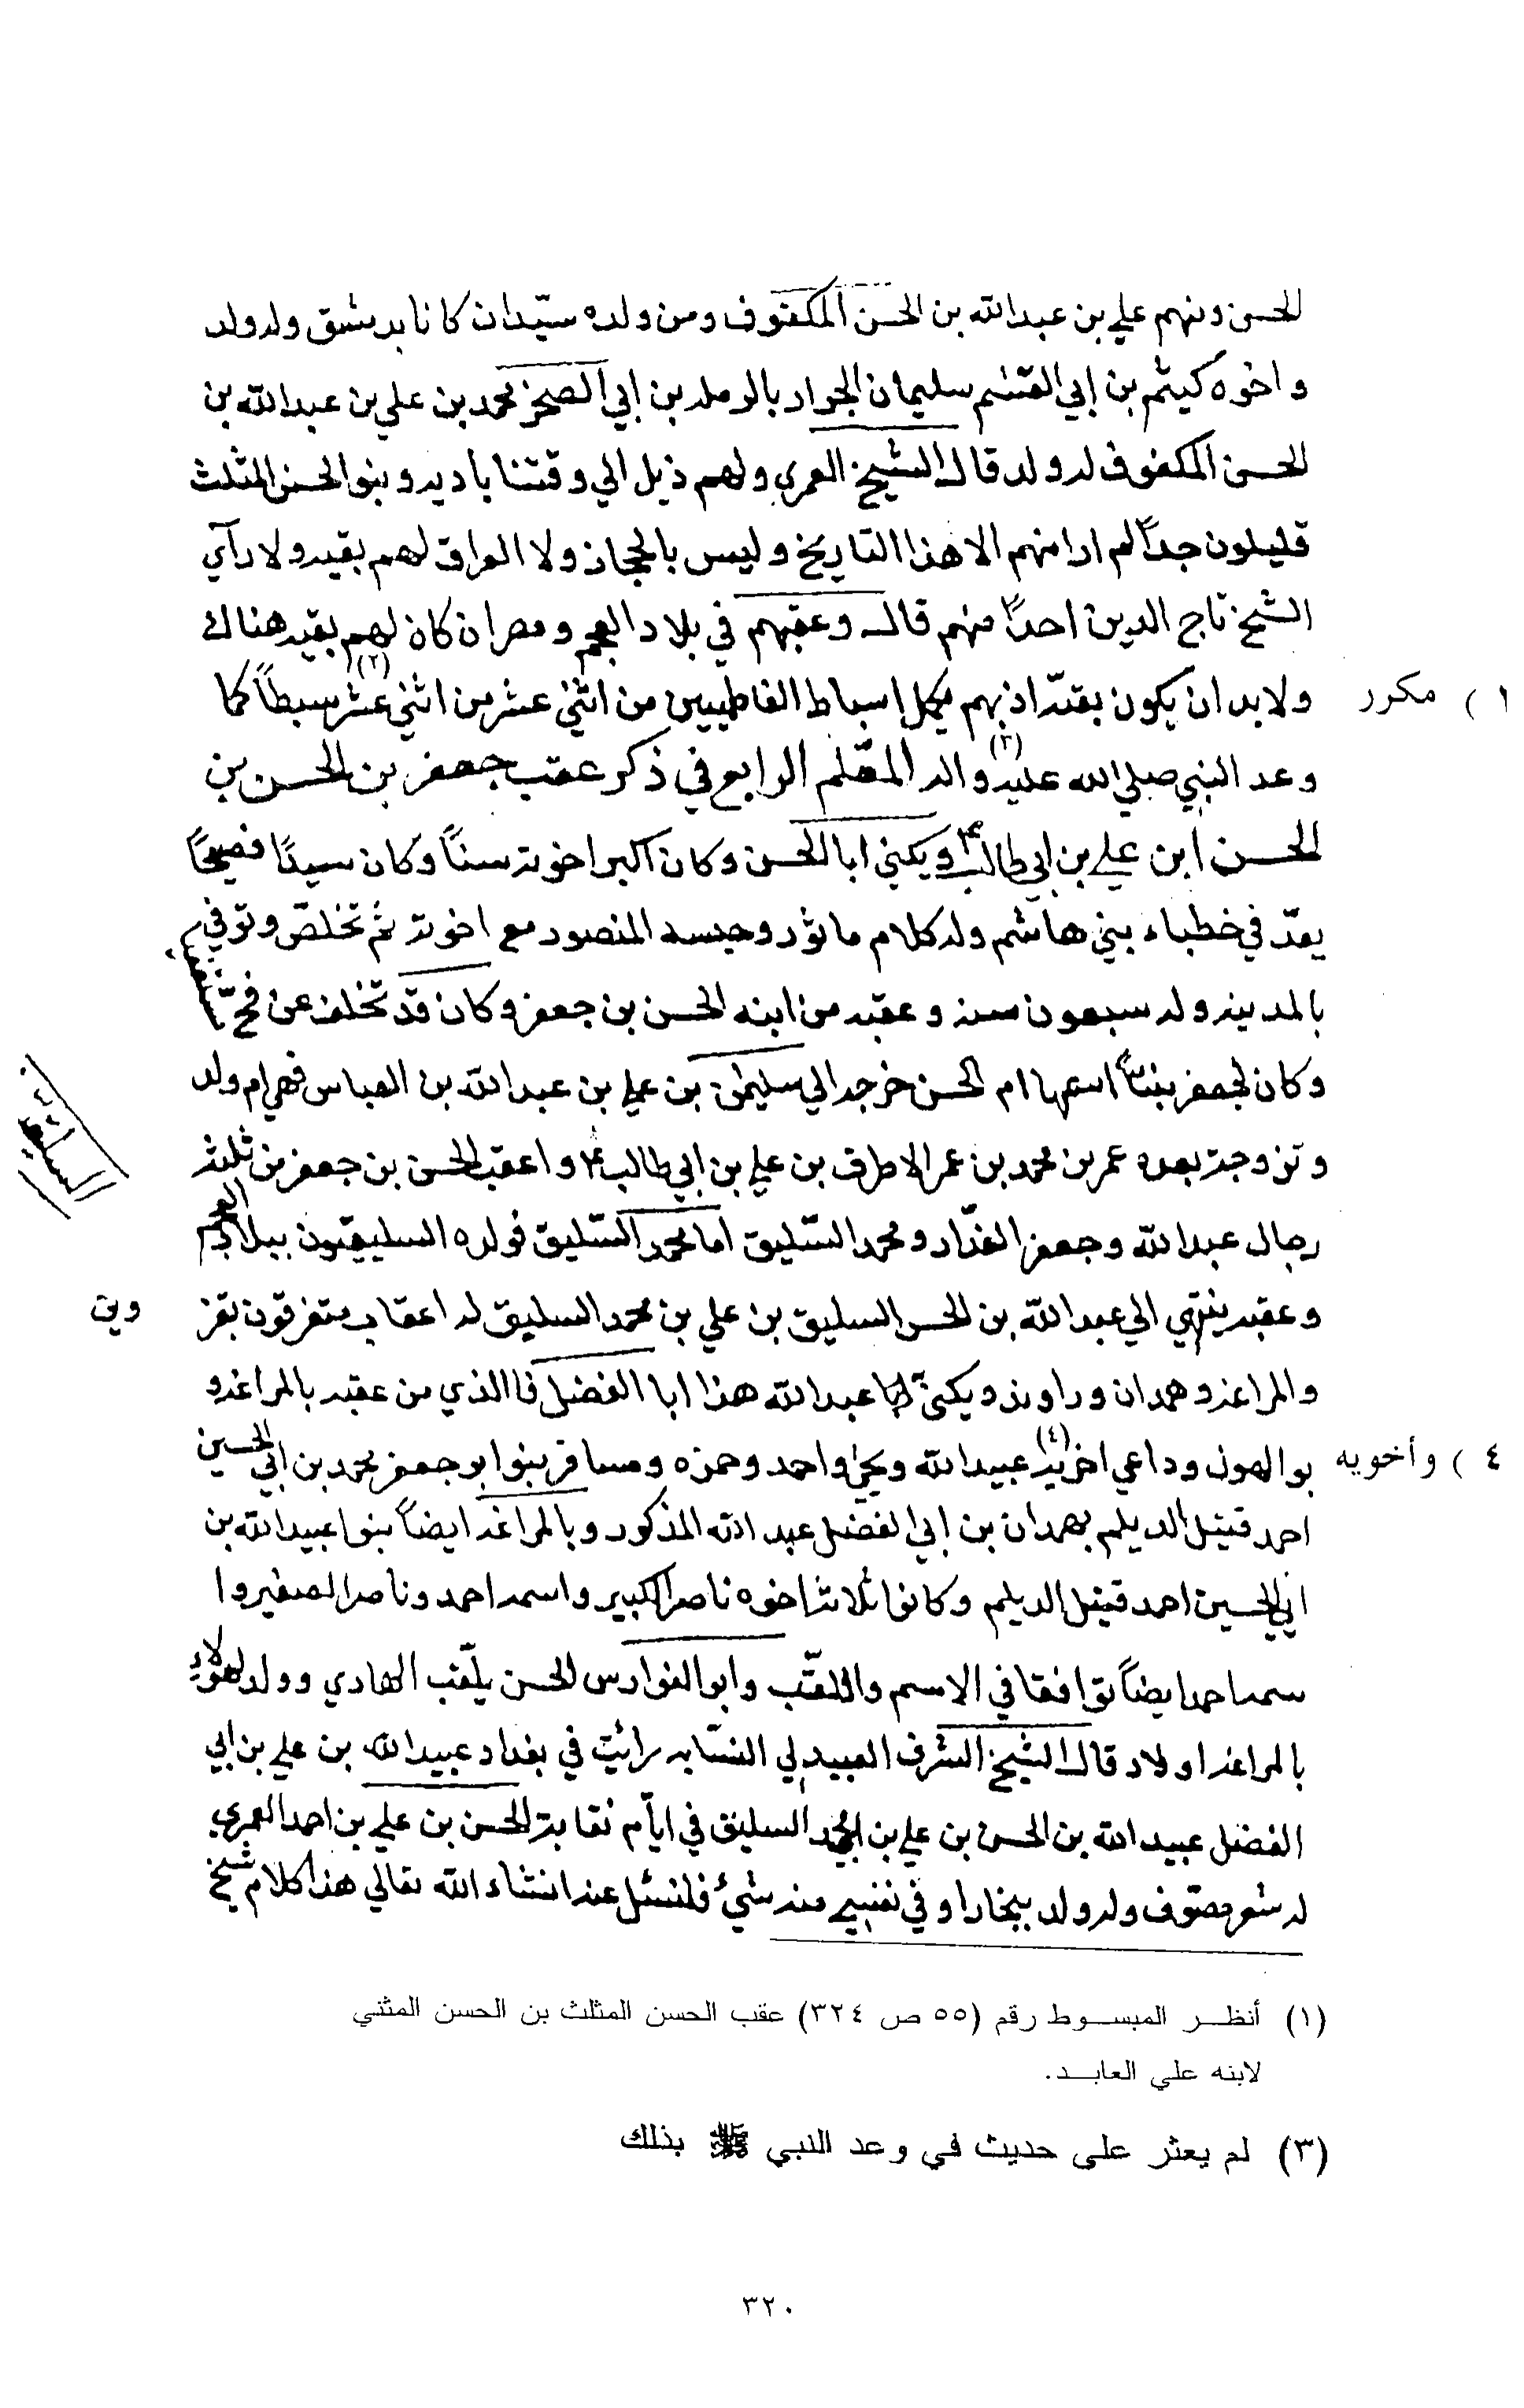 الحسن ومنهم علي بن عبدالله بن الحسن المكفوف ومن ولده سيّدان كانا بدمشق وله ولد
واخوه كيثم بن إبي القسم سليمان الجواد بالرمله بن إبي الصخر محمد بن علي بن عبدالله بن
الحسن المكفوف له ولد قال الشيخ العمري ولهم ذيل الي وقتنا باديه وبنو الحسن المثلث
قليلون جداً لم ار منهم الا هذا التاريخ وليس بالحجاز ولا العراق لهم بقيه ولا رآي
الشيخ تاج الدين احداً منهم قال وعقبهم في بلاد العجم ومصر ان كان لهم بقيه هناك
ولابد ان يكون بقيّة اذ بهم يكمل إسباط الفاطميين من اثني عشر من اثني عشر (٢) سبطاً كما
١) مكرر
وعد النبي صلي الله عليه واله (٣) المعّلم الرابع في ذكر عقب جعفر بن الحسن بن
الحسن ابن علي بن ابي طالب ع ويكني ابا الحسن وكان اكبر اخوته سناً وكان سيدًا فصيحًا
يعدّ في خطباء بني هاشم وله كلام ماثور وحبسه المنصور مع اخوته ثم تخلصّ وتوفي
بالمدينه وله سبعون سنه وعقبه من ابنه الحسن بن جعفر وكان قد تخلف عن فخّ
وكان لجعفر بنتاً اسمها ام الحسن خرجت الي سليمن بن علي بن عبدالله بن العباس فهي ام ولد
السليقيون
وتزوجة بعده عمر بن محمد بن عمر الاطرف بن علي بن ابي طالب ع واعقب الحسن بن جعفر من ثلثه
رجال عبدالله وجعفر الغدّار ومحمد السّليق اما محمد السّليق فولده السليقيون ببلاد العجم
وعقبه ينتهي الي عبدالله بن الحسن السليق بن علي بن محمد السليق له اعقاب متفرقون بقز
وين
والمراغه وهمدان وراوند ويكنى عبدالله هذا ابا الفضل فاالذي من عقبه بالمراغه و
بوالهول وداعي اخويه (٤) عبيدالله ويحيى واحمد وحمزه ومسافر بنوا بو جعفر محمد بن ابي الحسين
٤) وأخويه
احمد قتيل الديلم بهمدان بن إبي الفضل عبد الله المذكور وبالمراغه ايضاً بنوا عبيدالله بن
ابي الحسين احمد قتيل الديلم وكانوا ثلاثة اخوه ناصر الكبير واسمه احمد وناصر الصغير وا
سمه احمد ايضاً توافقا في الاسم واللقّب وابو الفوارس الحسن يلقّب الهادي وولد لهؤلاء
بالمراغه اولاد قال الشيخ الشرف العبيدلي النسّابه رائيت في بغداد عبيدالله بن علي بن ابي
الفضل عبيدالله بن الحسن بن علي بن محمد السليق في ايآم نقابة الحسن بن علي بن احمد العمري
له شعر وتصوّف وله ولد ببخارا وفي نفسي منه شيئ فلنسئل عنه انشاء الله تعالي هذا كلام شيخ
(١) أنظر المبسوط رقم (٥٥ ص ٣٢٤) عقب الحسن المثلث بن الحسن المثنى
لابنه علي العابد.
(٣) لم يعثر على حديث في وعد النبي ﷺ بذلك
٣٢٠